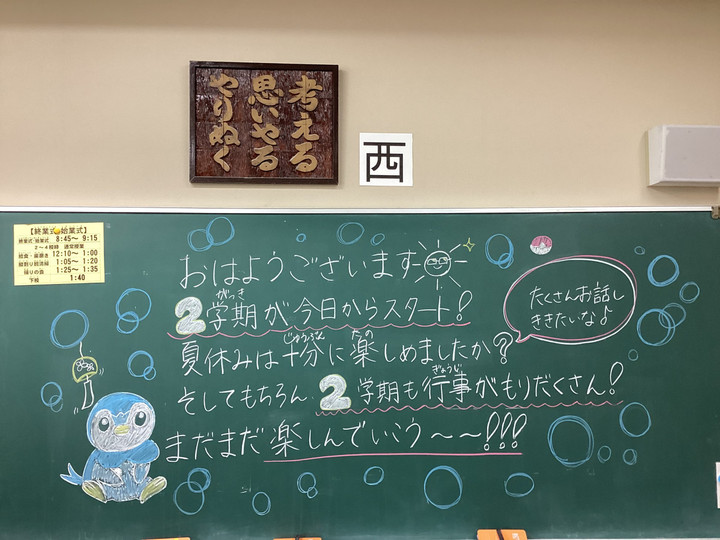 考える
思いやる
やりぬく
西
【終業式・始業式】
終業式・始業式 8:45～ 9:15
2～4校時 通常授業
給食・歯磨き 12:10～ 1:00
1:05～ 1:20
帰りの会 1:25～ 1:35
下校 1:40
おはようございます
2学期(がっき)が今日からスタート!
夏休みは十分(じゅうぶん)に楽(たの)しめましたか?
そしてもちろん、2学期も行事(ぎょうじ)がもりだくさん!
まだまだ楽しんでいこう～～!!!
たくさんお話し
ききたいな♪